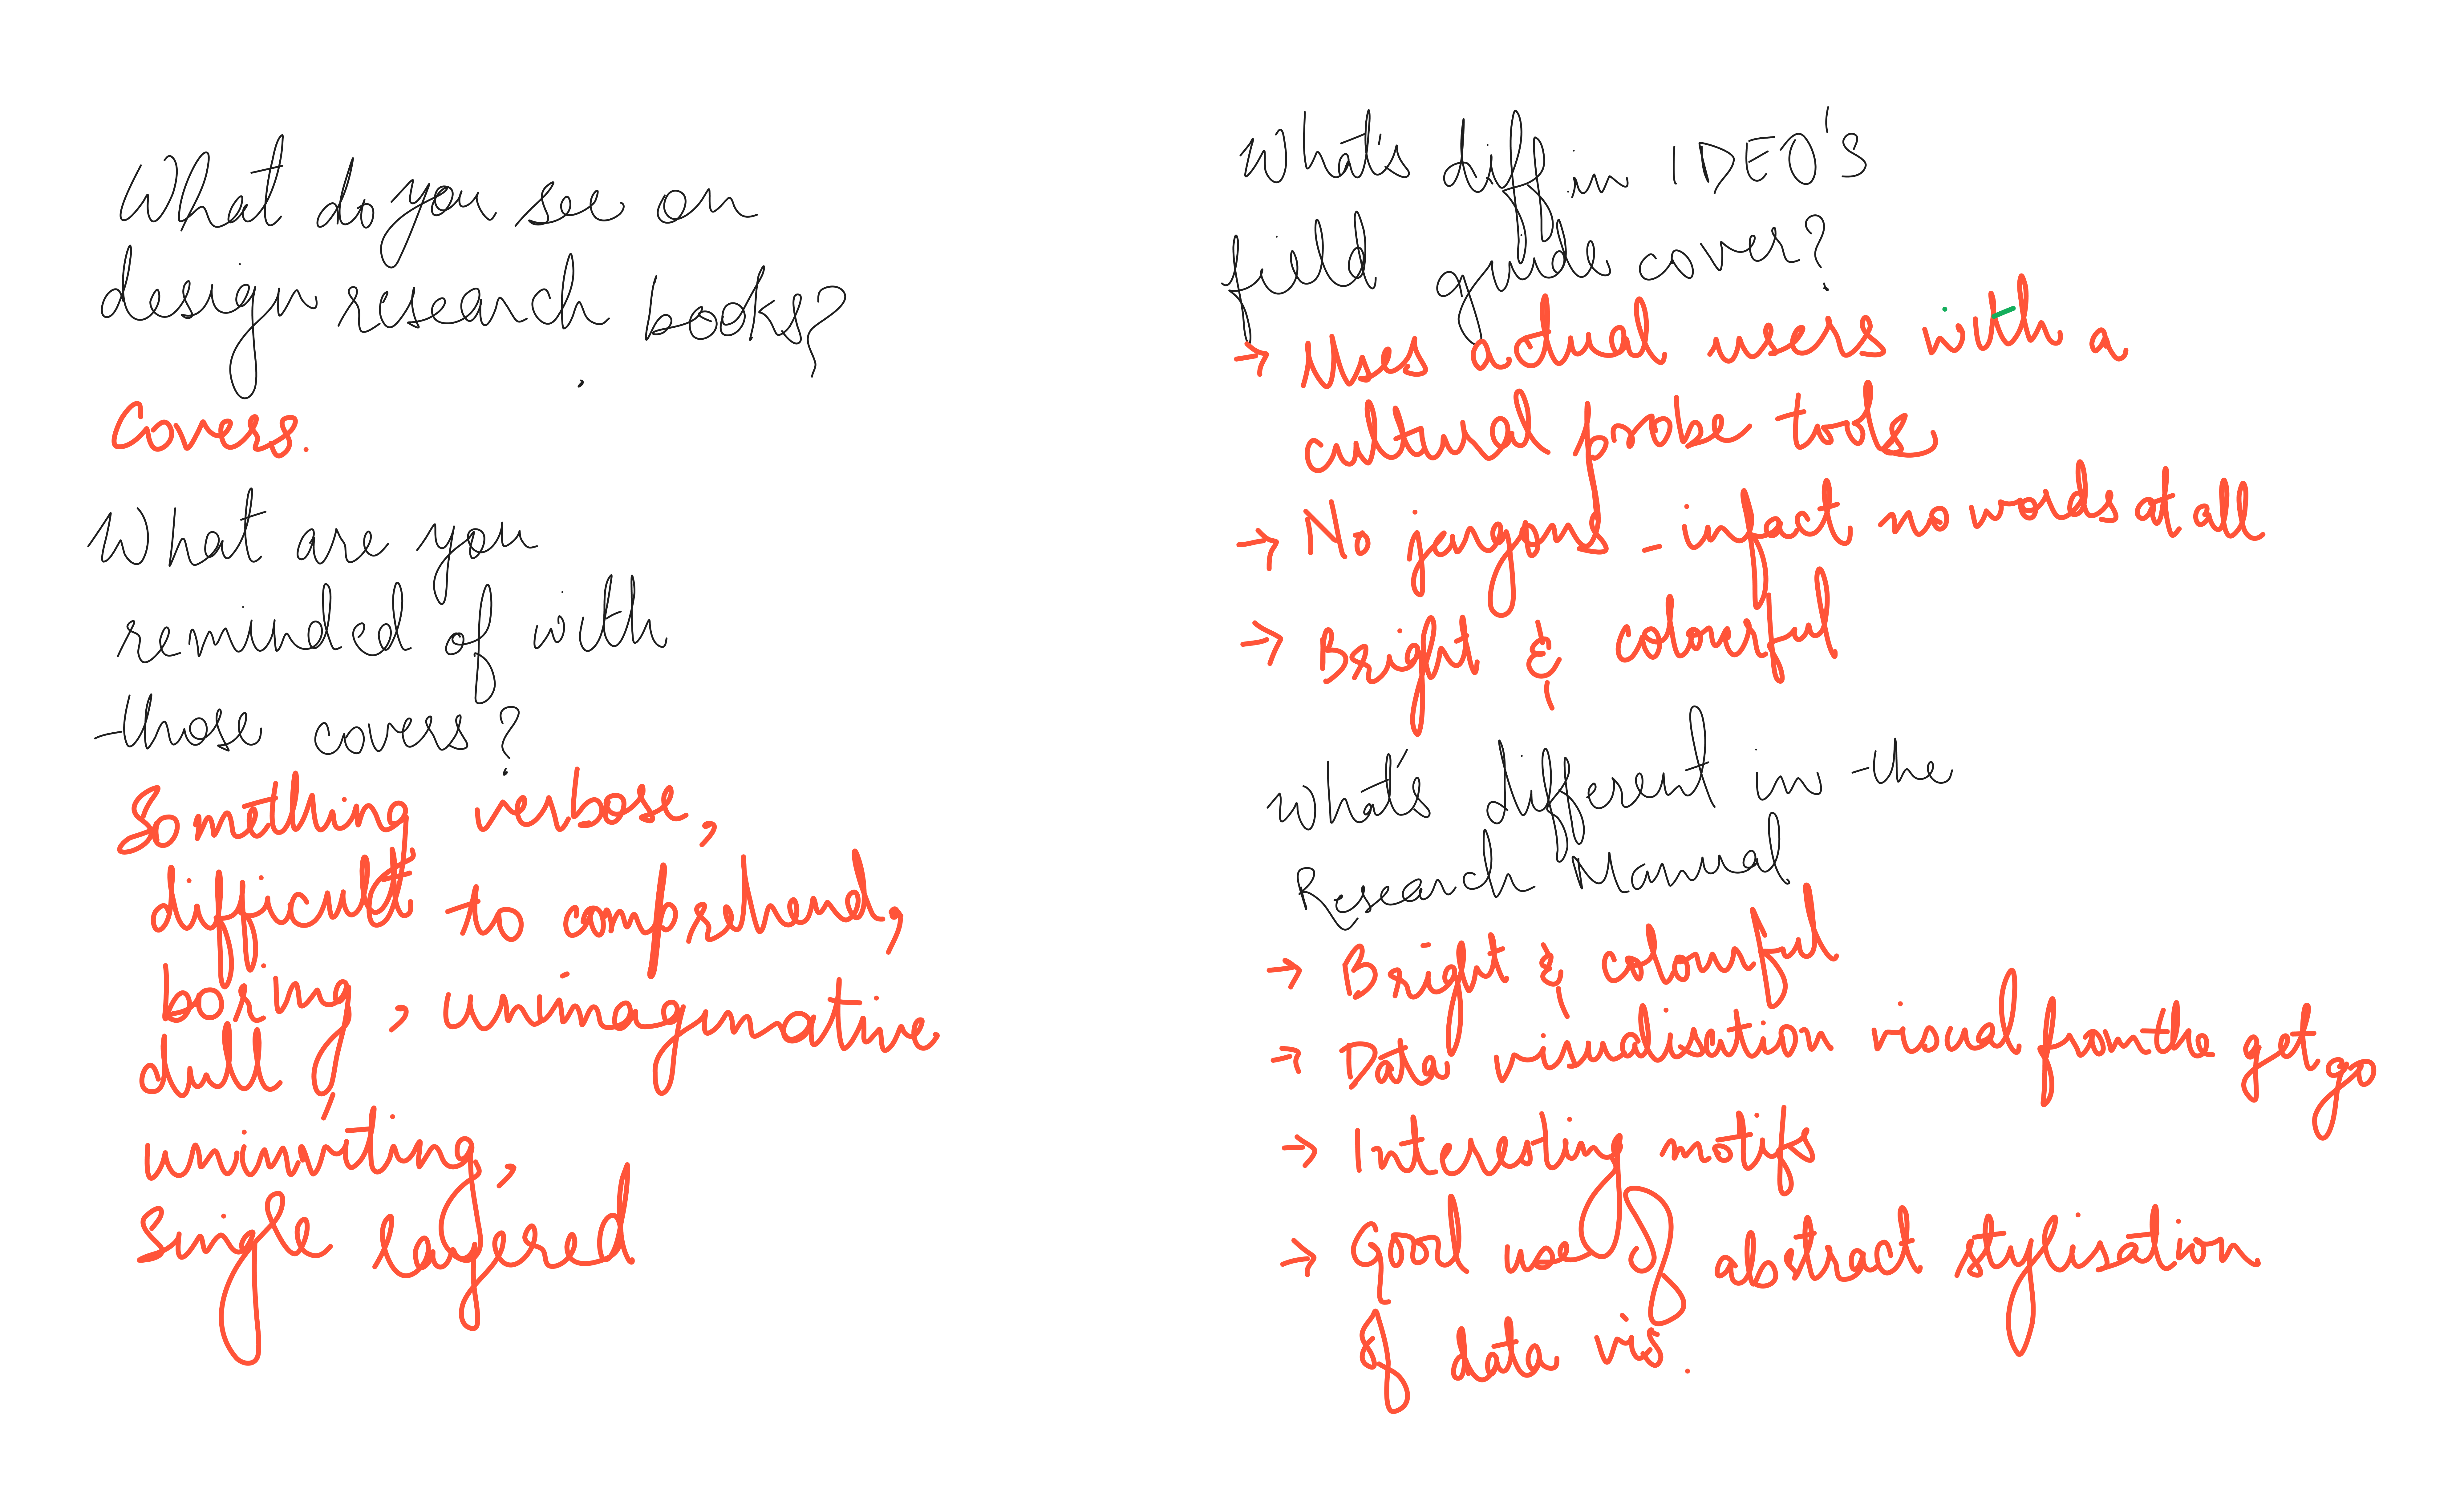 What do you see on
design research books?
Covers.
What are you
reminded of with
those covers?
Something verbose,
difficult to comprehend,
boring, unimaginative,
dull,
uninviting,
Single layered
What's diff in IDEO's
field guide cover?
→ Uses actual users with a
cultural probe tools
→ No jargons - infact no words at all
→ Bright & colourful
What's different in the
Research Manual
→ Bright & colourful
→ Data visualisation visual from the get go
→ Interesting motifs
→ Good use of abstract stylisation
of data vis.